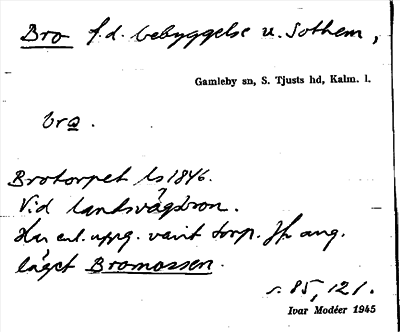 Bro f.d. bebyggelse u. Sothem,
Gamleby sn, S. Tjusts hd, Kalm. l.
bro.
Brotorpet ls 1846.
Vid landsvägsbron.
Har enl. uppg. varit torp. Jfr ang.
läget Bromossen.
s. 85, 121.
Ivar Modéer 1945